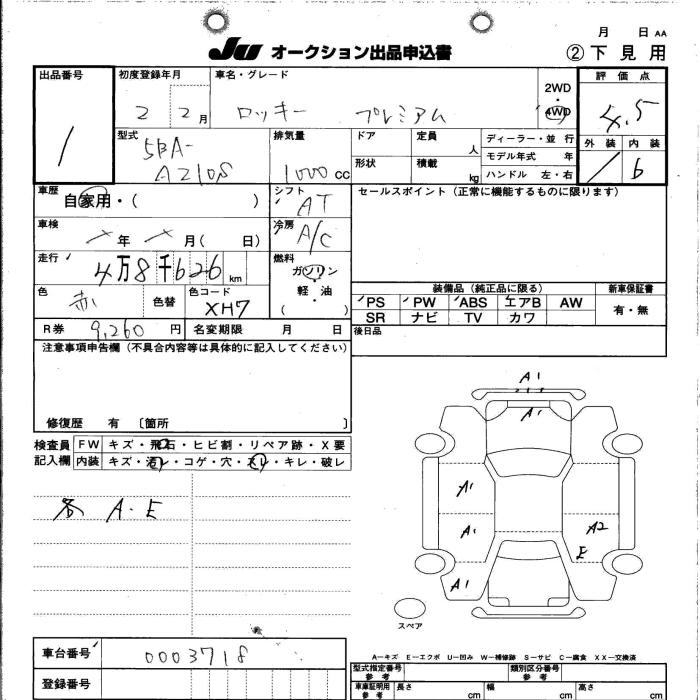 月 日 AA
JU オークション出品申込書 ②下見用
出品番号 初度登録年月 車名・グレード 2WD・4WD 評価点
1 2 2月 ロッキー プレミアム 4.5
型式 排気量 ドア 定員 人 ディーラー・並行 外装 内装
5BA- A210S 1000 cc 形状 積載 kg モデル年式 年 / b
ハンドル 左・右
車歴 自家用・( ) シフト AT セールスポイント(正常に機能するものに限ります)
車検 年 月( 日) 冷房 A/C
走行 4万8千626 km 燃料 ガソリン・軽・油 ( )
装備品(純正品に限る) 新車保証書
色 赤 色替 色コード XH7 PS PW ABS エアB AW 有・無
SR ナビ TV カワ
R券 9,260円 名変期限 月 日 後日品
注意事項申告欄(不具合内容等は具体的に記入してください)
修復歴 有 〔箇所 〕
検査員記入欄 FW キズ・飛石・ヒビ割・リペア跡・X要
内装 キズ・汚レ・コゲ・穴・スレ・キレ・破レ
各 A・E
A1
A1
A1
A1 A2
E
A1
スペア
A—キズ E—エクボ U—凹み W—補修跡 S—サビ C—腐食 XX—交換済
車台番号 0003718 型式指定番号 参考 類別区分番号 参考
登録番号 車車証明用 参考 長さ cm 幅 cm 高さ cm